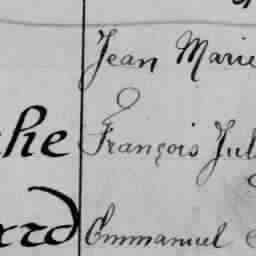 Jean Marie
François Jul
Emmanuel